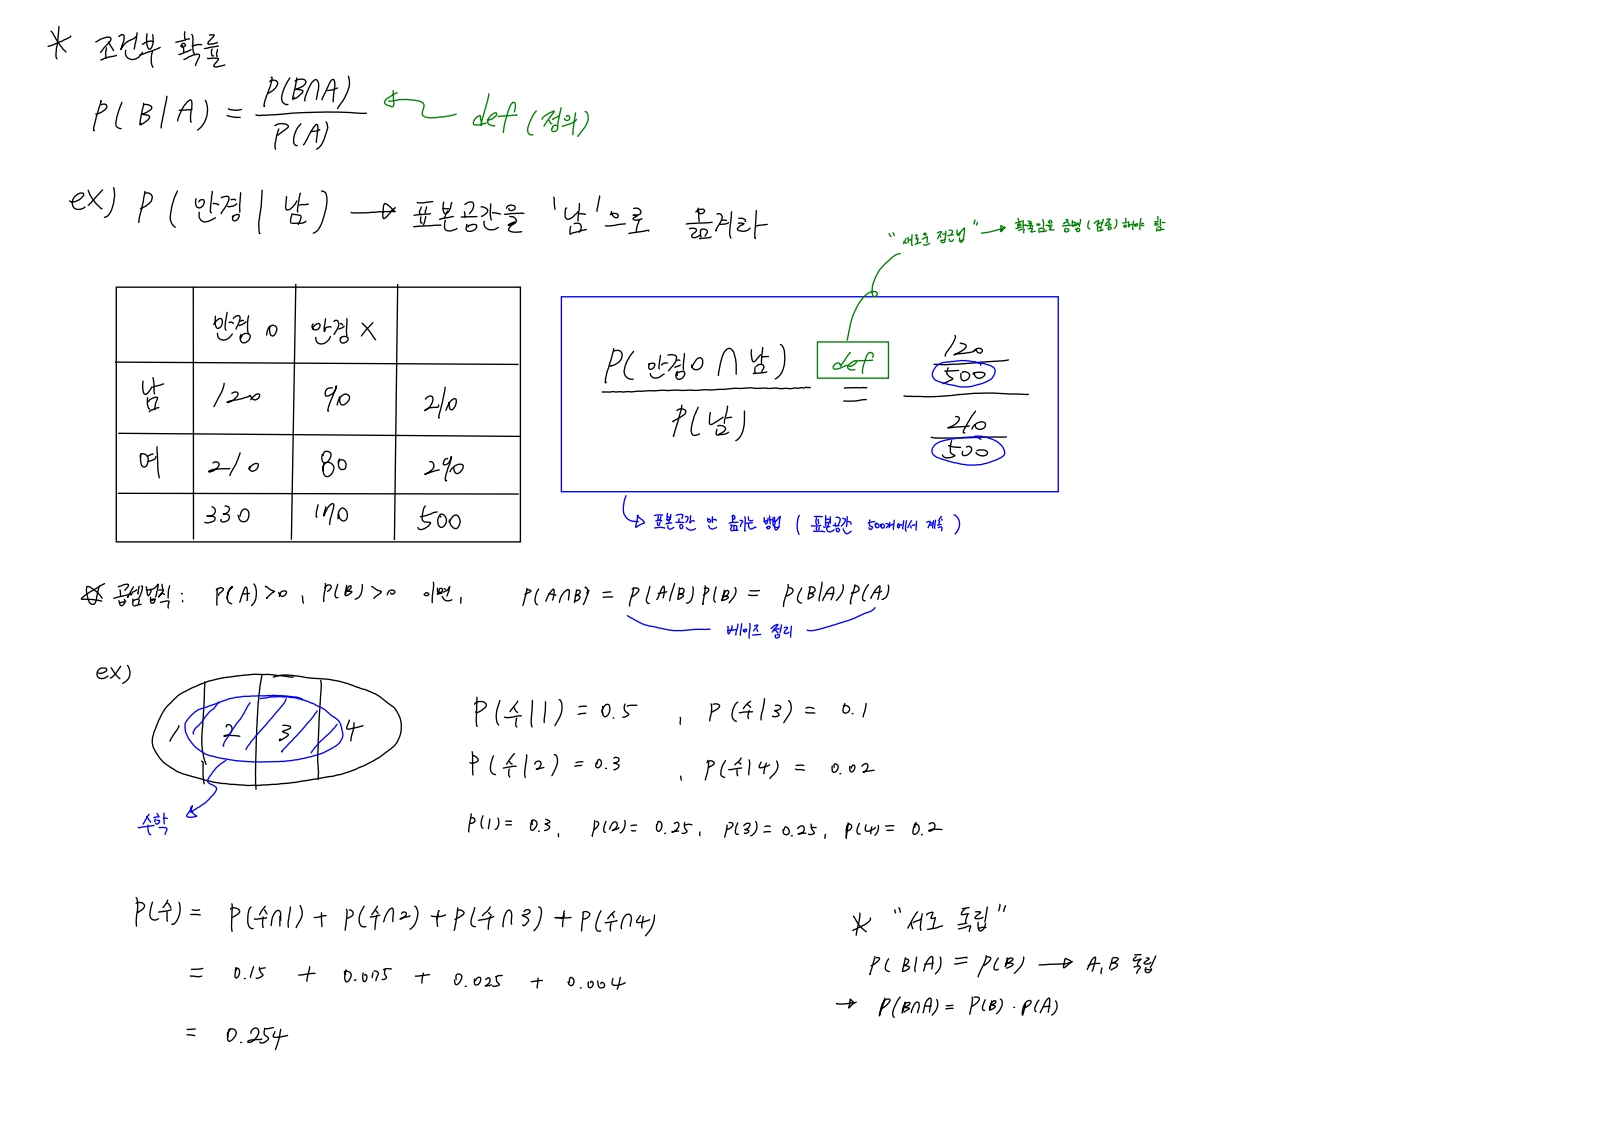 * 조건부 확률
P(B|A) = P(B∩A) / P(A) ← def (정의)
ex) P(안경|남) → 표본공간을 '남'으로 옮겨라
"새로운 접근법" → 확률임을 증명(검증)해야 함
안경 O 안경 X
남 120 90 210
여 210 80 290
330 170 500
P(안경O∩남) / P(남) def = (120/500) / (210/500)
→ 표본공간 안 옮기는 방법 (표본공간 500개에서 계속)
☆ 곱셈법칙: P(A)>0, P(B)>0 이면, P(A∩B) = P(A|B)P(B) = P(B|A)P(A)
베이즈 정리
ex)
1 2 3 4
수학
P(수|1) = 0.5, P(수|3) = 0.1
P(수|2) = 0.3, P(수|4) = 0.02
P(1) = 0.3, P(2) = 0.25, P(3) = 0.25, P(4) = 0.2
P(수) = P(수∩1) + P(수∩2) + P(수∩3) + P(수∩4)
= 0.15 + 0.075 + 0.025 + 0.004
= 0.254
* "서로 독립"
P(B|A) = P(B) → A, B 독립
→ P(B∩A) = P(B)·P(A)